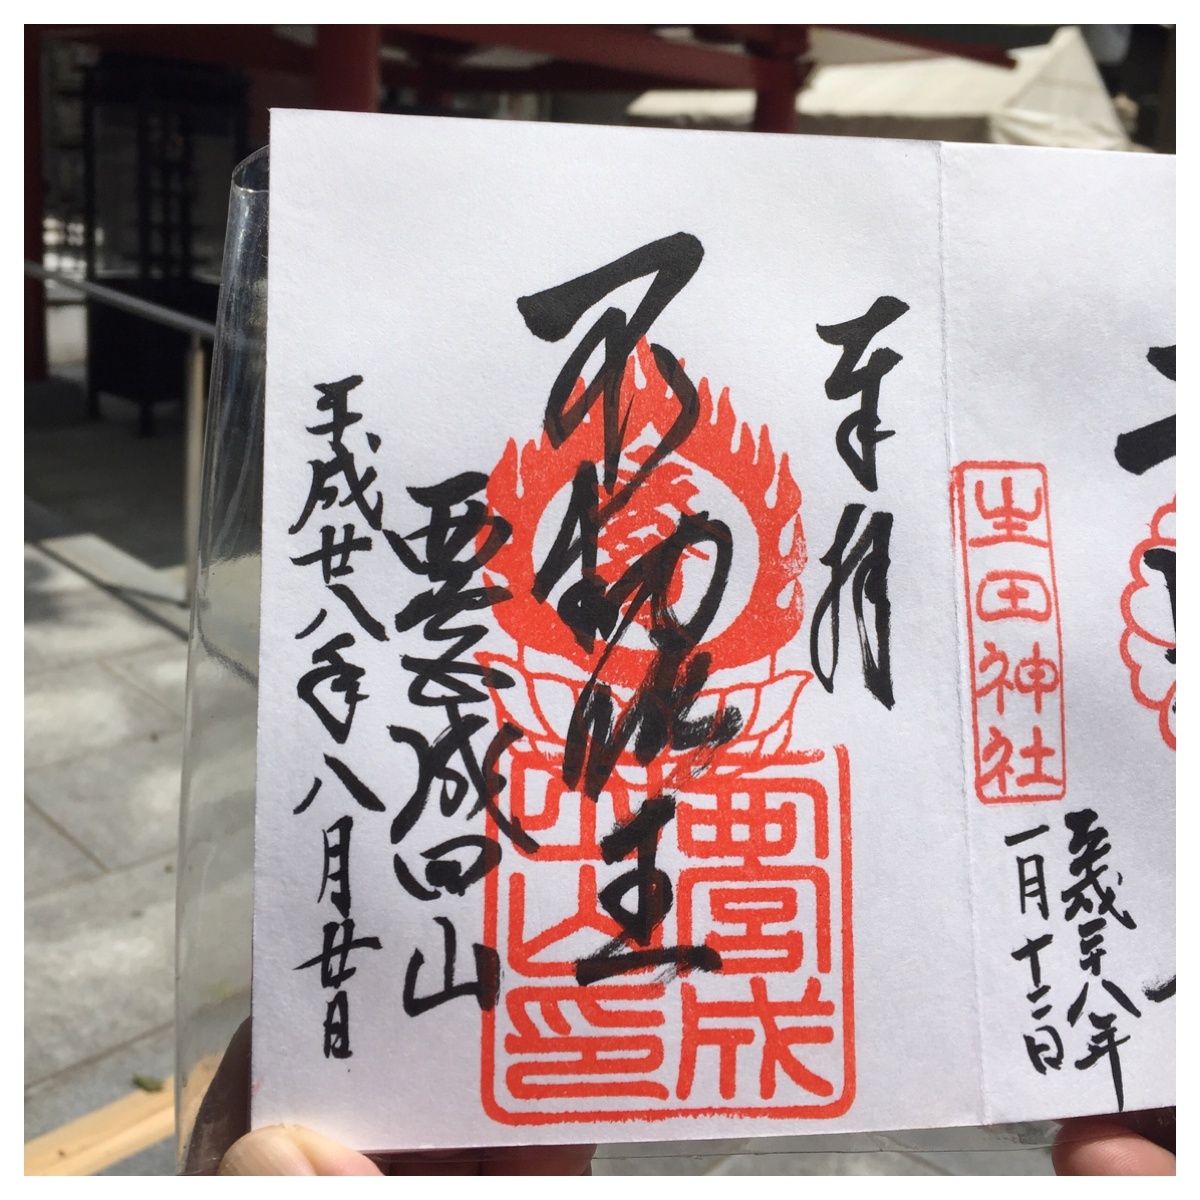 生田神社
平成二十八年
一月十二日
奉拝
不動明王
西宮成
田山印
西宮成田山
平成廿八年八月廿日